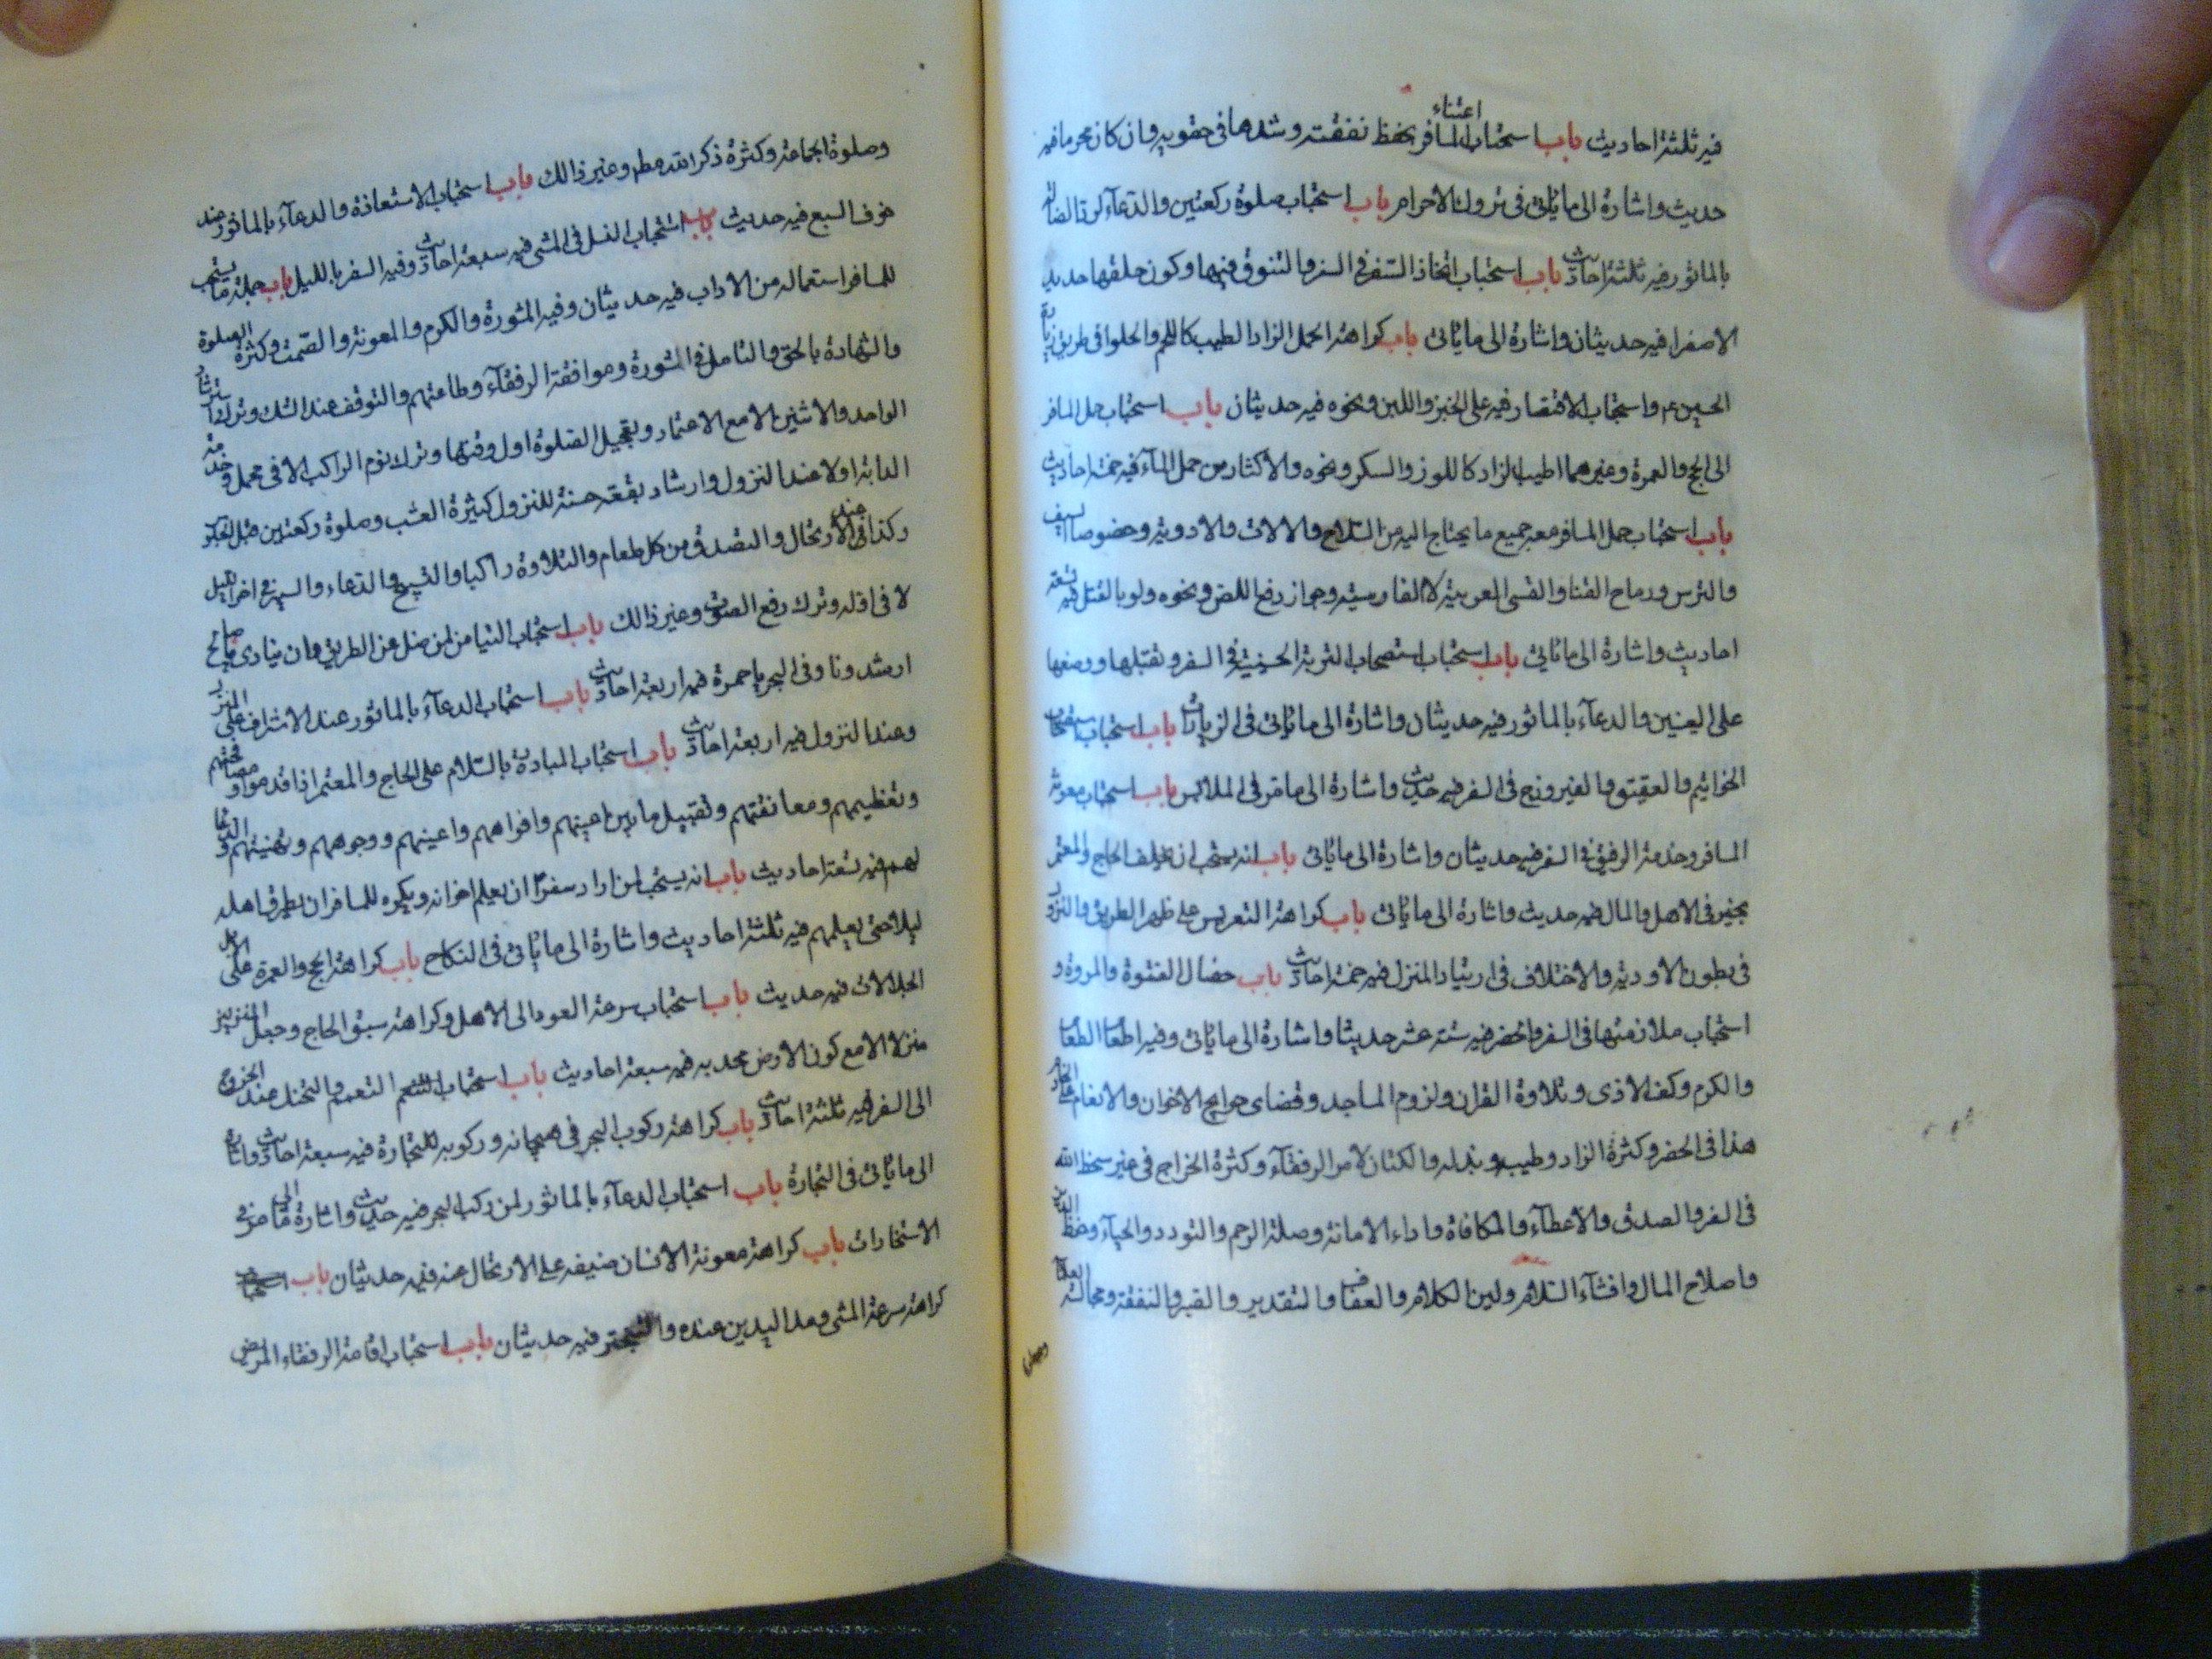 فيه ثلثة احاديث باب استحباب اعتناء المسافر بحفظ نفقته وشدها في حقويه وان كان محرما فيه
حديث واشارة الى ما ياتي في تروك الاحرام باب استحباب صلوة ركعتين والدعآء لرد الضالة
بالماثور فيه ثلثة احاديث باب استحباب اتخاذ السفرة في السفر والتنوق فيها وكون حلقها حديد
الاصفرا فيه حديثان واشارة الى ما ياتي باب كراهة الحمل الزاد الطيب كاللحم والحلوا في طريق زيارة
الحسين ع واستحباب الاقتصار فيه على الخبز واللبن ونحوه فيه حديثان باب استحباب حمل المسافر
الى الحج والعمرة وغيرهما اطيب الزاد كاللوز والسكر ونحوه والاكثار من حمل المآء فيه خمسة احاديث
باب استحباب حمل المسافر معه جميع ما يحتاج اليه من السلاح والالات والادوية وخصوصا السيف
والترس ورماح القنا والقسى العربية لا الفارسية وجواز دفع اللص ونحوه ولو بالقتل فيه تسعة
احاديث واشارة الى ما ياتي باب استحباب استصحاب التربة الحسينية في السفر وتقبيلها ووضعها
على العينين والدعآء بالماثور فيه حديثان واشارة الى ما ياتي في الزيارات باب استحباب استصحاب
الخواتيم والعقيق والفيروزج في السفر فيه حديث واشارة الى ما مر في الملابس باب استحباب معونة
المسافر وخدمة الرفيق في السفر فيه حديثان واشارة الى ما ياتي باب انه يستحب ان يخلف الحاج والمعتمر
بخير في الاهل والمال فيه حديث واشارة الى ما ياتي باب كراهة التعريس على ظهر الطريق والنزول
في بطون الاودية والاختلاف في ارتياد المنزل فيه خمسة احاديث باب خصال الفتوة والمروة و
استحباب ملازمتها في السفر والحضر فيه ستة عشر حديثا واشارة الى ما ياتي وفيه اطعام الطعام
والكرم وكف الاذى وتلاوة القران ولزوم المساجد وقضاى حوايج الاخوان والانعام على الخادم
هذا في الحضر وكثرة الزاد وطيبه وبذله والكتمان لامر الرفقآء وكثرة المزاح في غير سخط الله
في السفر والصدق والاعطآء والمكافاة واداء الامانة وصلة الرحم والتودد والحيآء وحفظ الدين
واصلاح المال وافشآء السلام ولين الكلام والعفاف والتقدير والقبر والنفقة ومجالسة العلمآء
وصلوة الجماعة وكثرة ذكر الله مطر وغير ذالك باب استحباب الاستعاذة والدعآء بالماثور عند
خوف السبع فيه حديث باب استحباب النسل في المشي فيه سبعة احاديث وفيه السفر بالليل باب جملة ما يستحب
للمسافر استعماله من الاداب فيه حديثان وفيه المشورة والكرم والمعونة والصمت وكثرة الصلوة
والشهادة بالحق والتامل في المشورة وموافقة الرفقآء وطاعتهم والتوقف عند الشك وترك استرشاد
الواحد والاثنين الا مع الاعتماد وتعجيل الصلوة اول وقتها وترك نوم الراكب الا في محمل وخدمة
الدابة اولا عند النزول وارشاد بقعة حسنة للنزول كثيرة العشب وصلوة ركعتين قبل الجلوس
وكذا عند الارتحال والتصدق من كل طعام والتلاوة راكبا والتسبيح والدعاء والسير في اخر الليل
لا في اوله وترك رفع الصوت وغير ذالك باب استحباب التيامن لمن ضل عن الطريق وان ينادى يا صالح
ارشدونا وفى البحر يا حمزة فيه اربعة احاديث باب استحباب الدعآء بالماثور عند الاشراف على المنزل
وعند النزول فيه اربعة احاديث باب استحباب المبادرة بالسلام على الحاج والمعتمر اذا قدموا ومصافحتهم
وتعظيمهم ومعانقتهم وتقبيل ما بين اعينهم وافواههم واعينهم ووجوههم وتهنيتهم والدعا
لهم فيه تسعة احاديث باب انه يستحب لمن اراد سفرًا ان يعلم اخوانه ويكره للمسافر ان يطرق اهله
ليلا حتى يعلمهم فيه ثلثة احاديث واشارة الى ما ياتي في النكاح باب كراهة الحج والعمرة على الابل
الجلالات فيه حديث باب استحباب سرعة العود الى الاهل وكراهة سبق الحاج وجعل المنزلين
منزلا الا مع كون الارض مجدبه فيه سبعة احاديث باب استحباب التعمم والتحنك عند الخروج
الى السفر فيه ثلثة احاديث باب كراهة ركوب البحر في هيجانه وركوبه للتجارة فيه سبعة احاديث واشارة
الى ما ياتي في التجارة باب استحباب الدعآء بالماثور لمن ركب البحر فيه حديث واشارة الى ما مر في
الاستخارات باب كراهة معونة الانسان ضيفه على الارتحال عنه فيه حديثان باب
كراهة سرعة المشي ومد اليدين عنده والتبختر فيه حديثان باب استحباب اقامة الرفقاء المريض